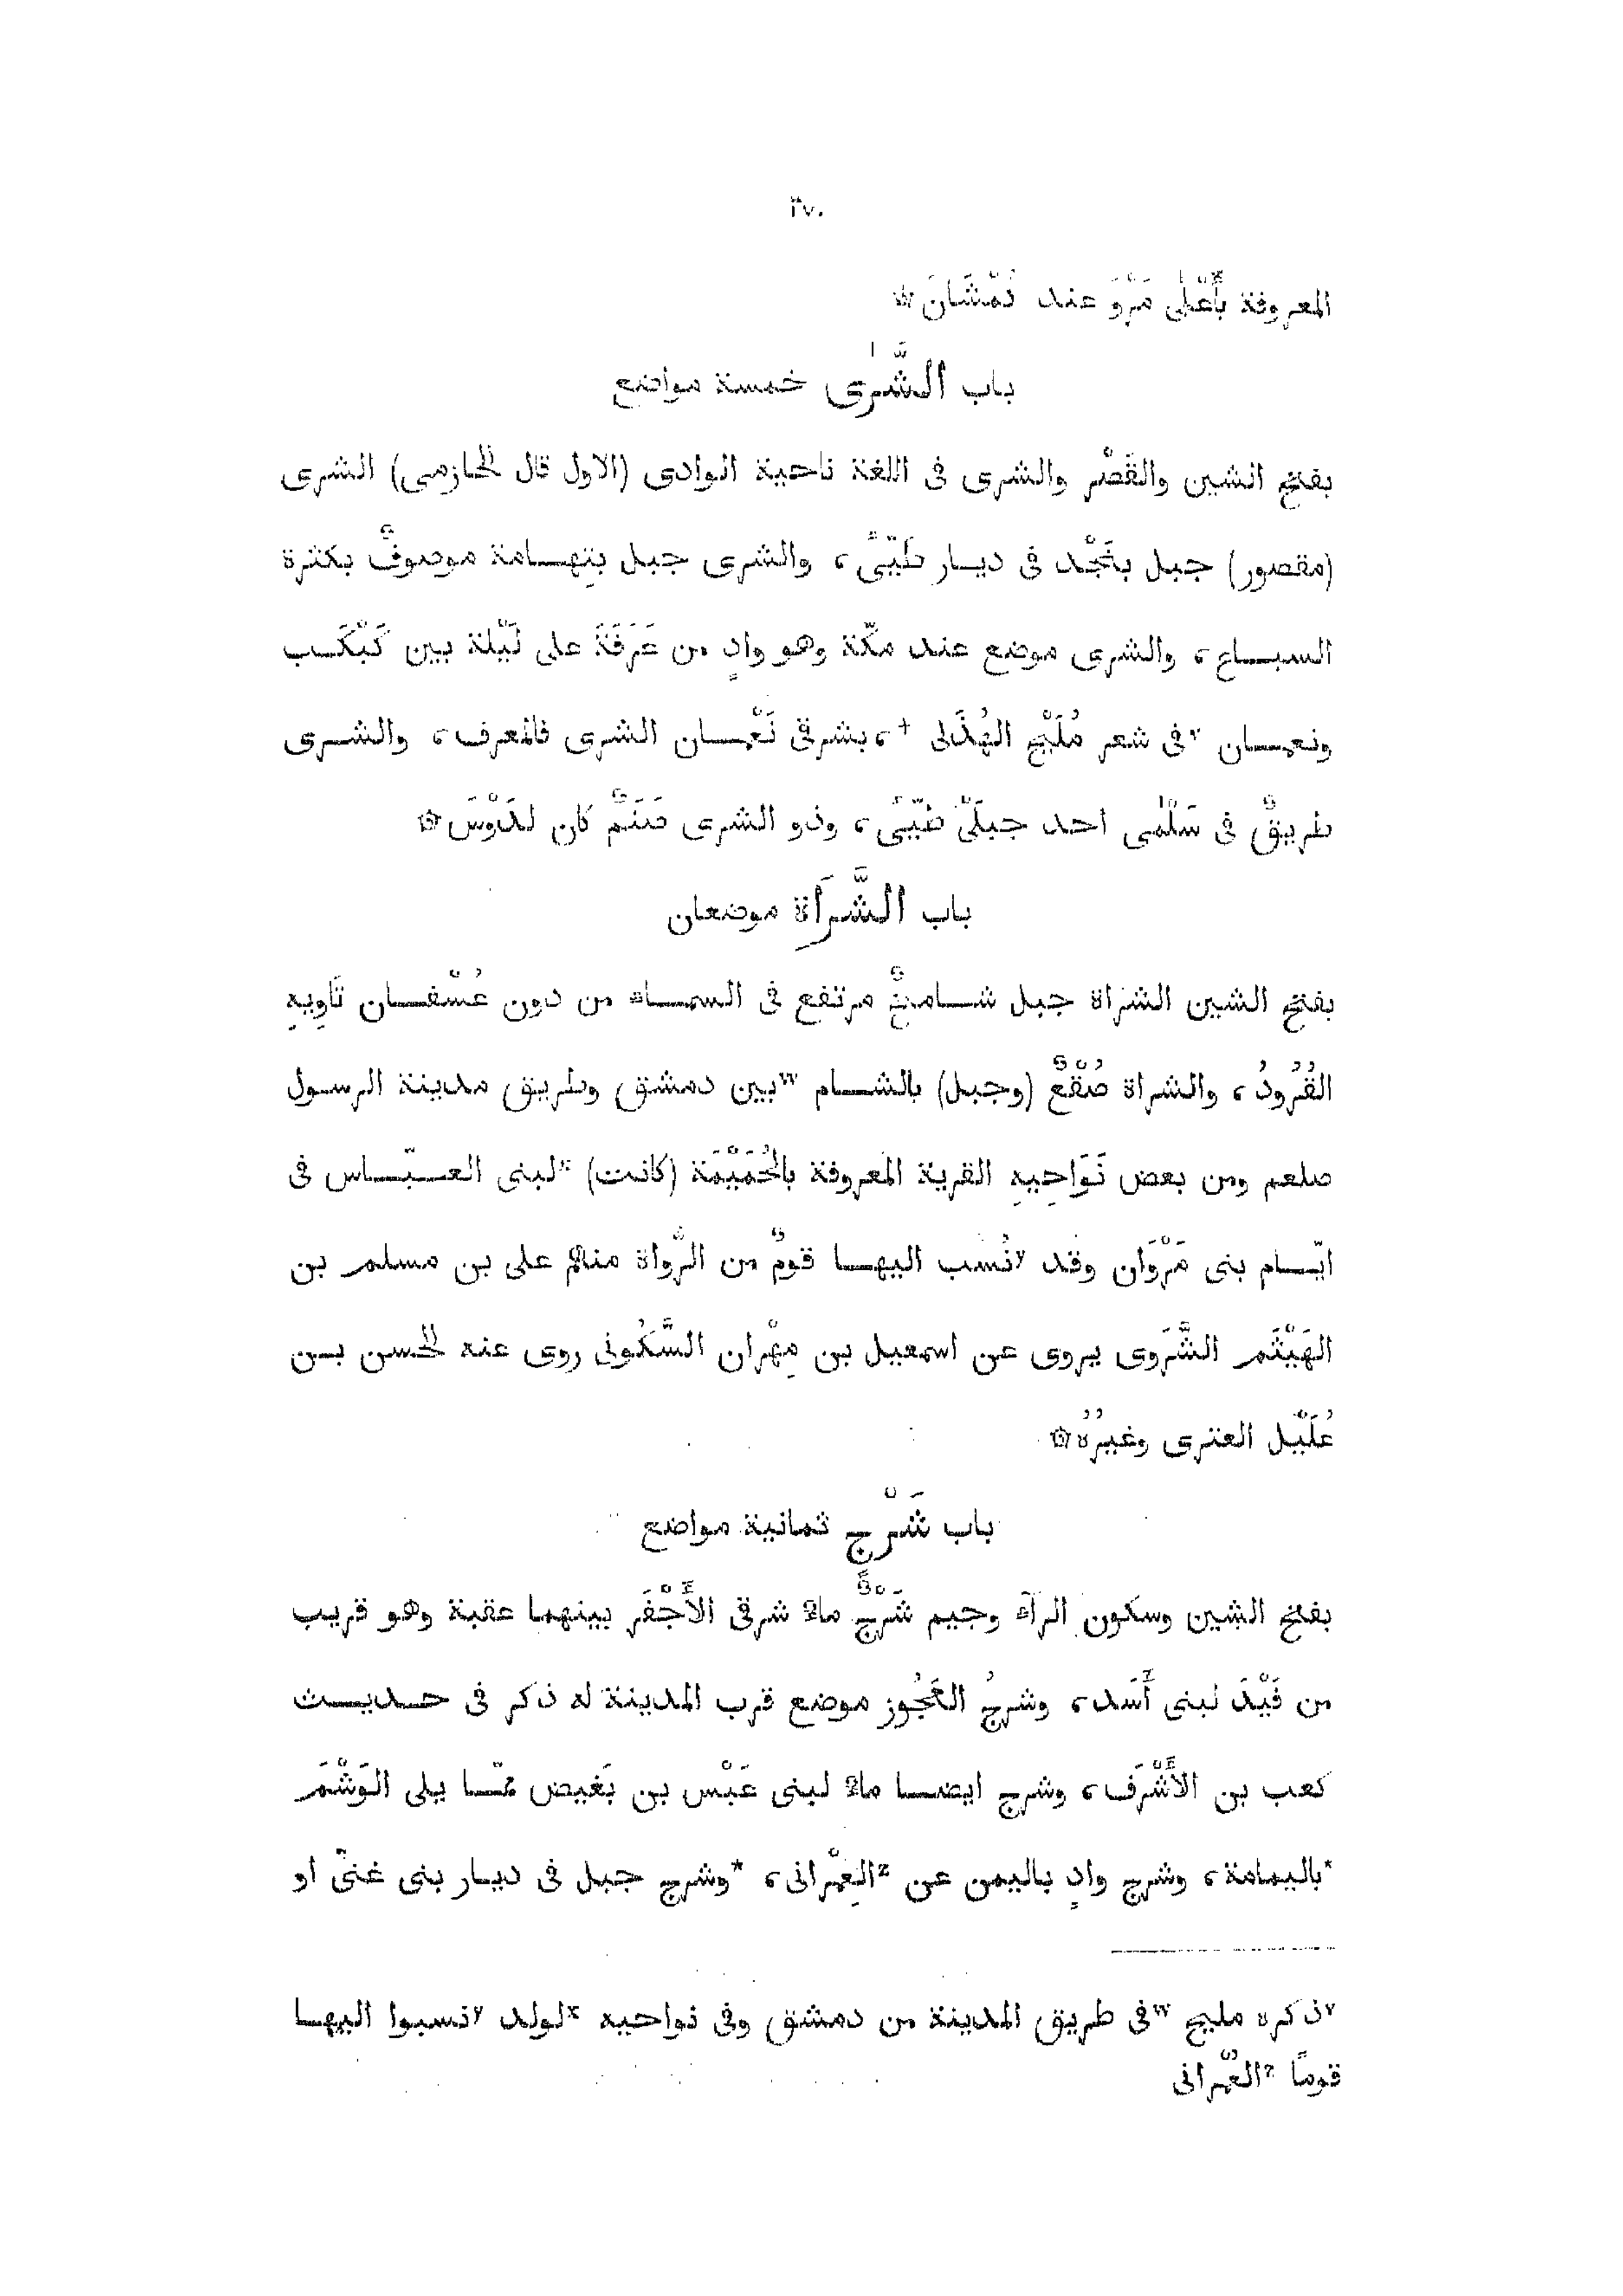 ٢٧٠
المعروفة بأَعْلَى مَرْوَ عند نُمْشَانَ ۞
باب الشَّرَى خمسة مواضع
بفتح الشين والقَصْر والشرى فى اللغة ناحية الوادى (الاول قال الحازمى) الشرى
(مقصور) جبل بنَجْد فى ديار طَيِّئ، والشرى جبل بتِهامة موصوفٌ بكثرة
السباع، والشرى موضع عند مكّة وهو وادٍ من عَرَفَةَ على لَيْلة بين كَبْكَب
ونعمان ᵛفى شعر مُلَيْح الهُذَلى +، بشرقى نَعْمان الشرى فالمعرف، والشرى
طريقٌ فى سَلْمى احد جبلَىْ طَيِّئ، وذو الشرى صَنَمٌ كان لدَوْسَ ۞
باب الشَّرَاة موضعان
بفتح الشين الشراة جبل شامخٌ مرتفع فى السماء من دون عُسْفان تَاوِيهِ
القُرُودُ، والشراة صُقْعٌ (وجبل) بالشام ʷبين دمشق وطريق مدينة الرسول
صلعم ومن بعض نَوَاحِيهِ القرية المعروفة بالحُمَيْمَة (كانت) ˣلبنى العبّاس فى
ايّام بنى مَرْوَان وقد ʸنُسب اليها قومٌ من الرُّواة منهم على بن مسلم بن
الهَيْثَم الشَّرَوى يروى عن اسمعيل بن مِهْران السَّكُونى روى عنه الحسن بن
عُلَيْل العنزى وغيرُهُ ۞
باب شَرْج ثمانية مواضع
بفتح الشين وسكون الرآء وجيم شَرْجٌ مآءٌ شرقى الأَجْفَر بينهما عقبة وهو قريب
من فَيْدَ لبنى أَسَد، وشرجُ العَجُوز موضع قرب المدينة له ذكر فى حديث
كعب بن الأَشْرَف، وشرج ايضا مآءٌ لبنى عَبْس بن بَغيض ممّا يلى الوَشْمَ
*باليمامة، وشرج وادٍ باليمن عن ᶻالعِمْرانى، *وشرج جبل فى ديار بنى غنىّ او
ᵛذكره مليح ʷفى طريق المدينة من دمشق وفى نواحيه ˣلولد ʸنسبوا اليها
قومًا ᶻالعُمْرانى